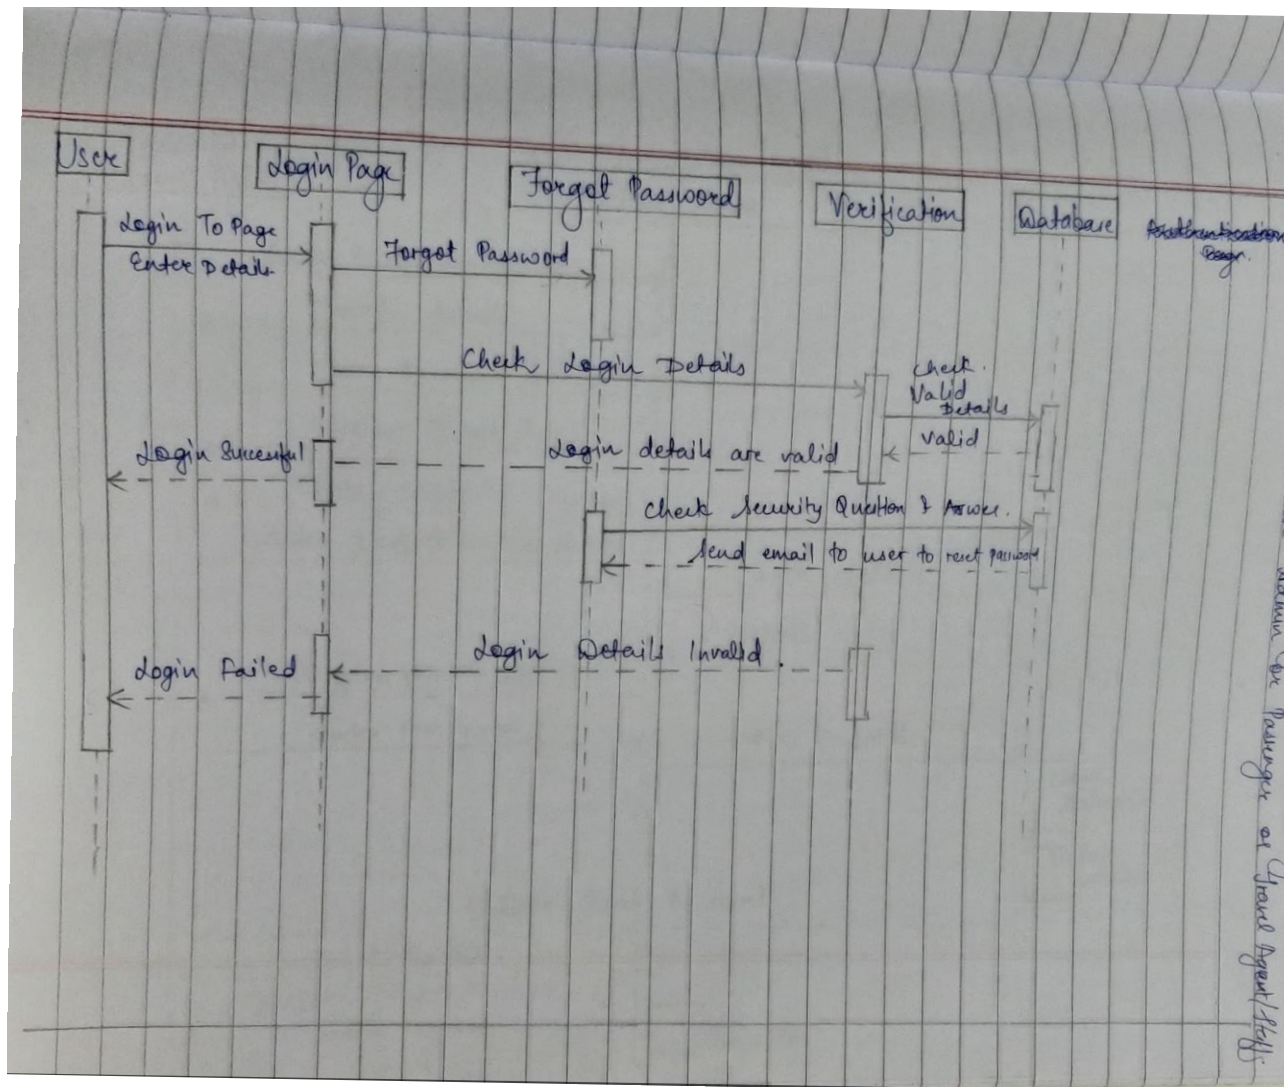 User
Login Page
Forgot Password
Verification
Database
Login To Page
Enter Details.
Forgot Password
Check Login Details
Check.
Valid
Details
Valid
Login Successful
Login details are valid
Check Security Question & Answer.
Send email to user to reset password
Login Details Invalid.
Login Failed
Admin or Passenger or Travel Agent/Staff